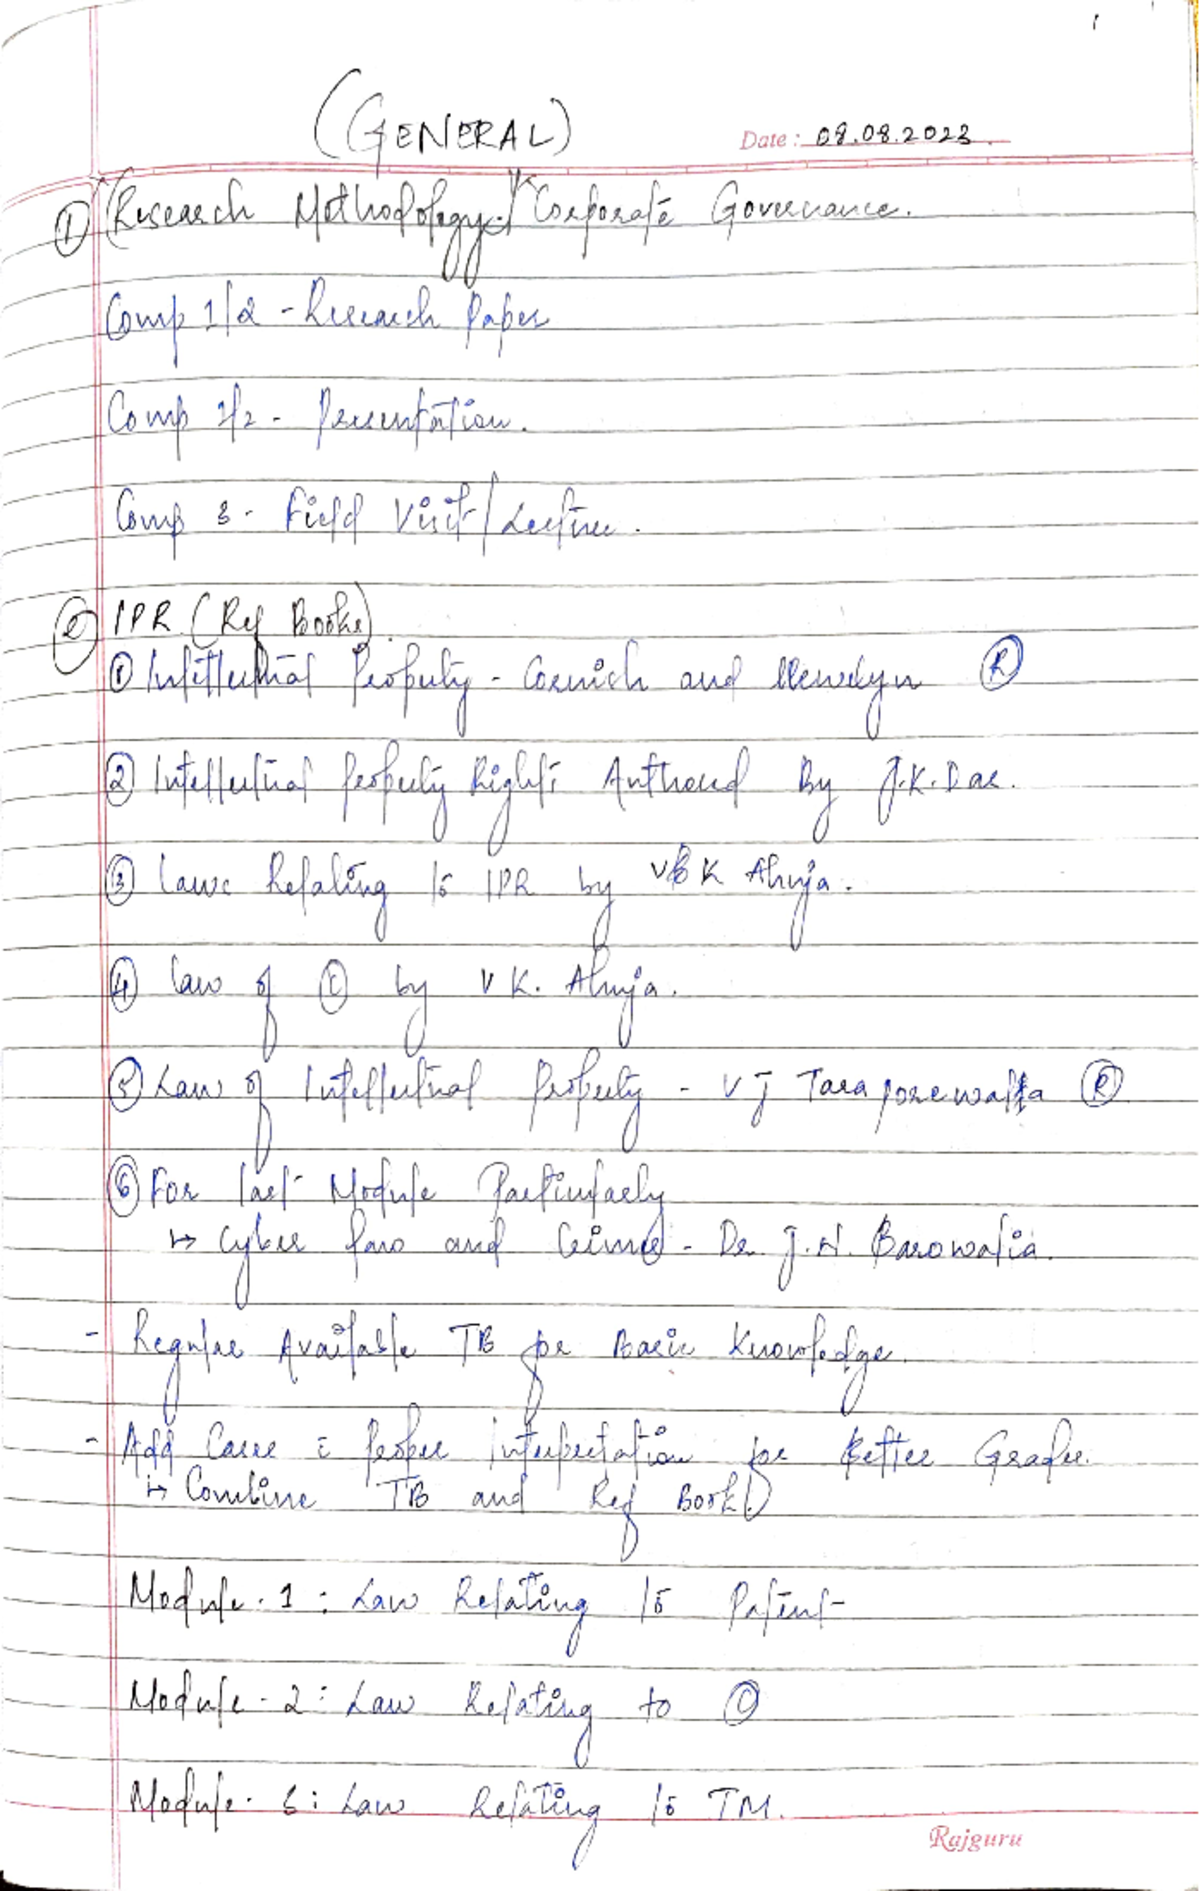 (GENERAL)
Date : 08.08.2023
① Research Methodology / Corporate Governance.
Comp 1/2 - Research Paper
Comp 1/2 - Presentation.
Comp 3 - Field Visit / Lecture.
② IPR (Ref Books).
① Intellectual Property - Cornish and Llewelyn Ⓡ
② Intellectual Property Rights Authored By J.K. Das.
③ Laws Relating to IPR by V K Ahuja.
④ Law of © by V K. Ahuja.
⑤ Law of Intellectual Property - V J Taraporewalla Ⓡ
⑥ For last Module Particularly
↳ Cyber Law and Crimes - Dr. J.N. Barowalia.
- Regular Available TB for Basic Knowledge.
- Add Cases & Proper Interpretation for Better Grades.
↳ Combine TB and Ref Book.
Module - 1 : Law Relating to Patent
Module - 2 : Law Relating to ©
Module - 3 : Law Relating to TM.
Rajguru